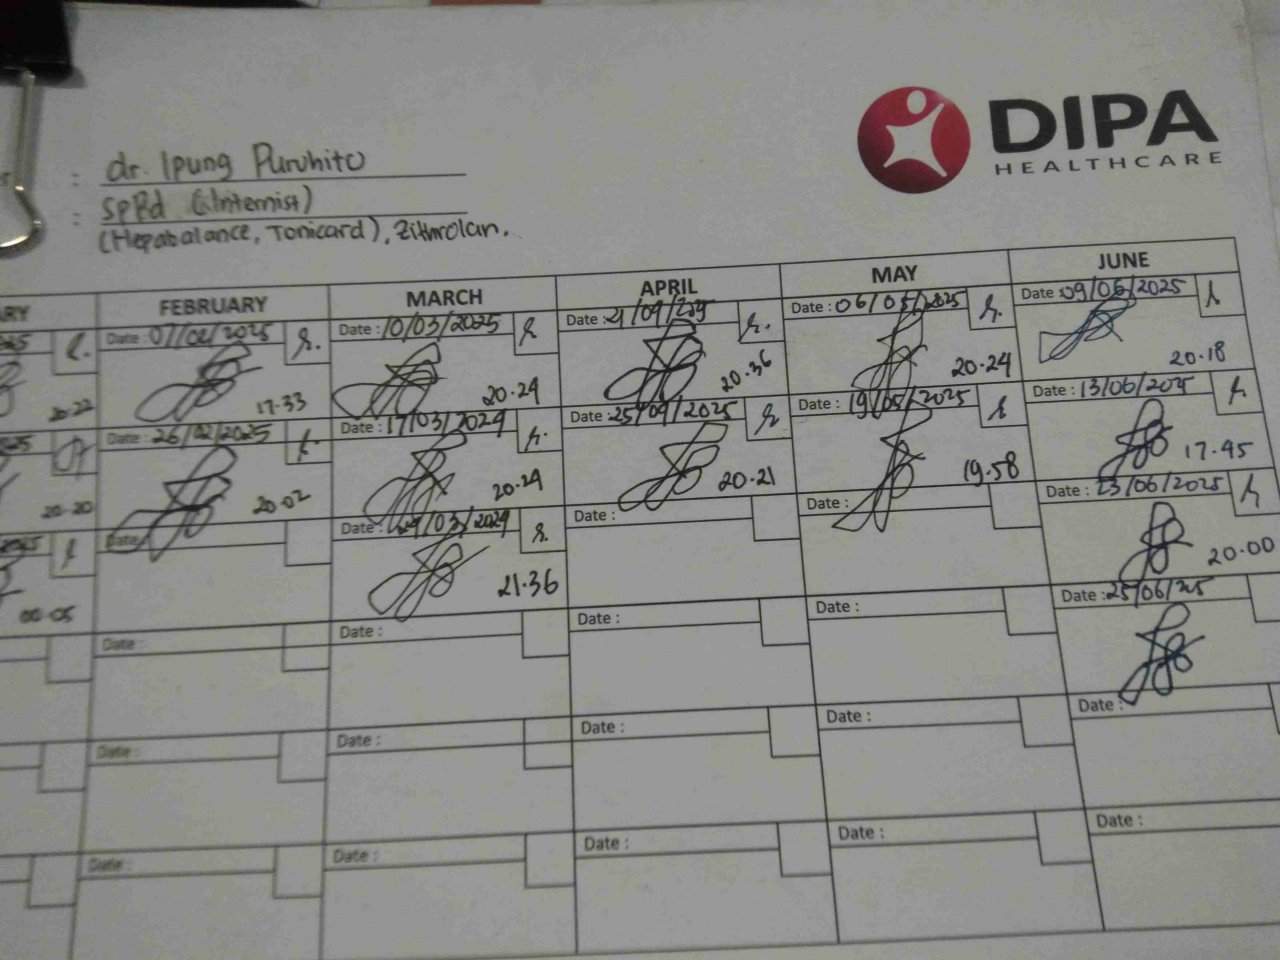 DIPA
HEALTHCARE
: dr. Ipung Puruhito
: SpPd (Internist)
(Hepabalance, Tonicard), Zithrolan.
ARY FEBRUARY MARCH APRIL MAY JUNE
Date : 07/02/2025 Date : 10/03/2025 Date : 21/04/225 Date : 06/05/2025 Date : 09/06/2025
20.22 17.33 20.24 20.36 20.24 20.18
Date : 26/02/2025 Date : 17/03/2024 Date : 25/04/2025 Date : 19/05/2025 Date : 13/06/2025
20.20 20.02 20.24 20.21 19.58 17.45
Date : Date : 24/03/2024 Date : Date : Date : 23/06/2025
00.05 21.36 20.00
Date : Date : Date : Date : Date : 25/06/225
Date : Date : Date : Date : Date :
Date : Date : Date : Date : Date :